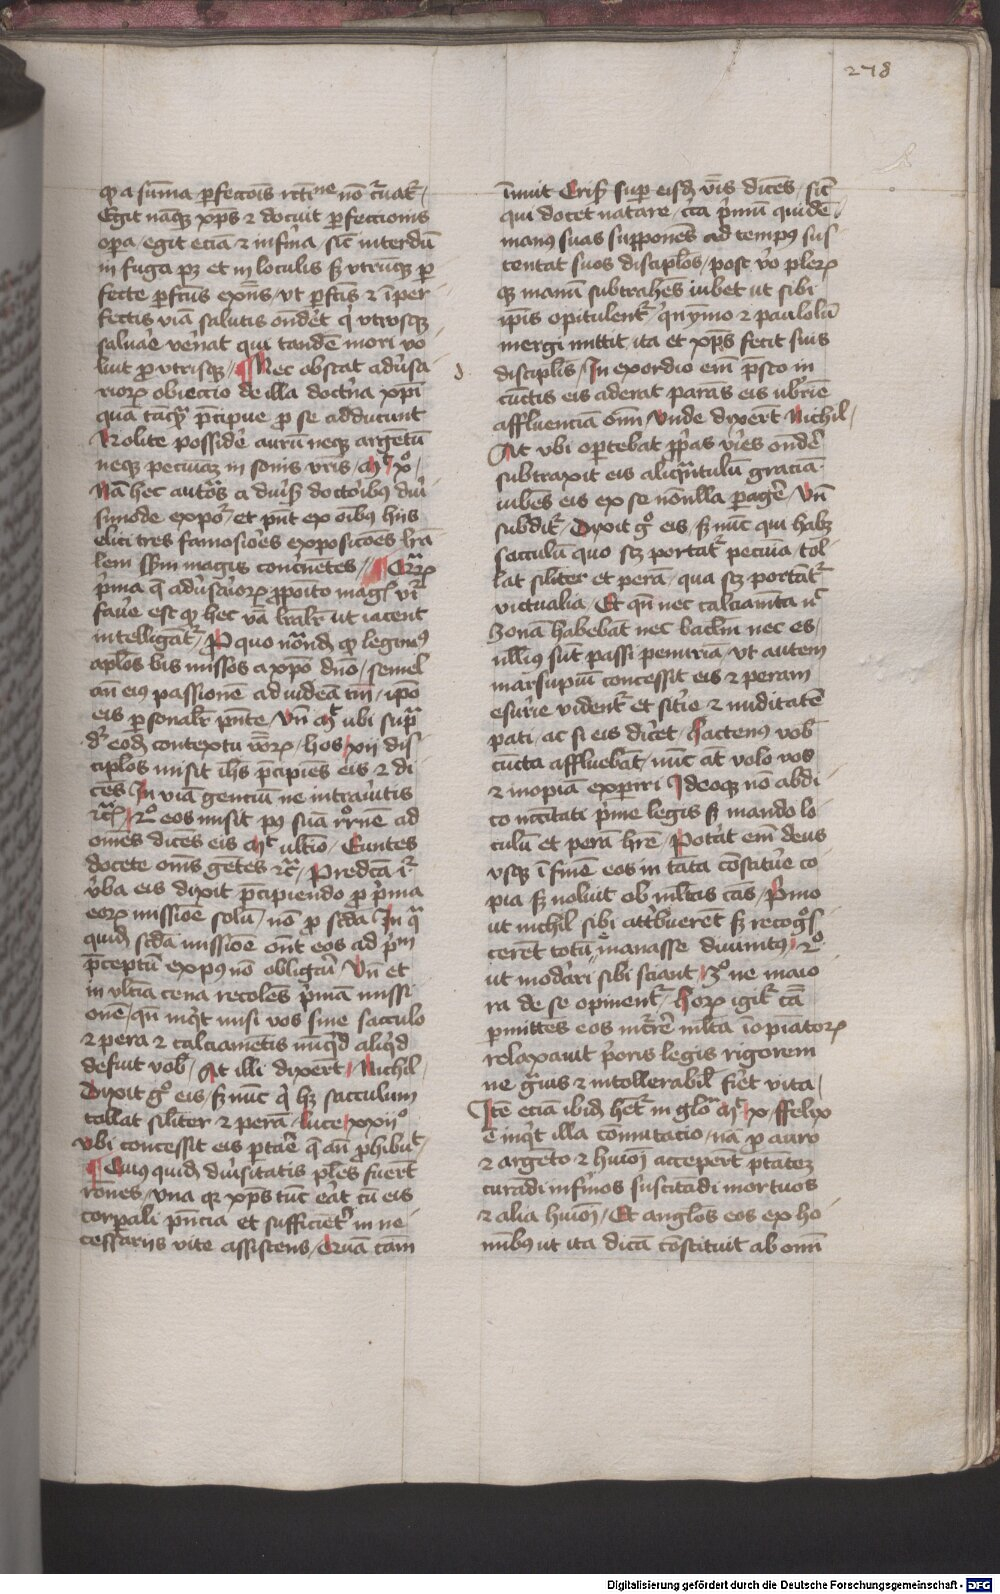 278
qa suma pfectois rctine no cuat /
Egit naq xps et docuit perfectionis
opa / egit ecia et infima sic interdu
in fuga pz et in loculis sz utrumq per
fecte pfctus exns / ut pfctis et iper
fectis via salutis ondet q utrosq
salvare venat qui tande mori vo
luit pro utrisq // Nec obstat adusa
riorum obieccio de illa doctina xpi
qua tamq pcipue pro se adducunt
Nolite posside auru neq argetu
neq pecuniaz in sonis vris / mt xo /
Na hec autas a duis doctoribus dui
simode expor / et pnt ex oibus hiis
elici tres famosiores exposicoes lra
lem ssm magis concnetes //
pma q adusarior pposito magis vr
fave est q hec va lralr ut iacent
intelligat / Pro quo nond q legimus
aplos bis missos a xpo dno / semel
an eius passione ad iudea tm / ipo
eis psonalr pnte / Un mt ubi supra
dr eod contextu / hos xii dis
ciplos misit ihs pcipies eis et di
ces In via genciu ne intraveritis
rc / 2o eos misit post sua rorne ad
omes dices eis mt ultio / Euntes
docete oms getes rc / Predcta ir
vba eis dixit pcipiendo pro pma
eorum missione solu / no pro scda In qua
quid scda missione ont eos ad pm
pceptu expus no obligari / Un et
in ultia cena recoles pma missi
one / qn inqt misi vos sine sacculo
et pera et calciametis nuqd aliqd
defuit vob / At illi dixert / Nichil /
Dixit go eis / sz nuc q hz sacculum
tollat siliter et pera / luce xxiio
ubi concessit eis ptare q an phibuit /
Cuius quid diusitatis ples fuert
rones / una qr xps tuc erat cu eis
corpali pncia et sufficietr in ne
cessariis vite assistens / Qua cam
innuit Cris sup eisd vis dices / sic
qui docet natare / cca pmu quide
manus suas supponens ad tempus sus
tentat suos disciplos / post vo pler
q manu subtrahes iubet ut sibi
ipis opitulent / qnymo et paululu
mergi mittit ita et xps fecit suis
disciplis / In exordio em psto in
cunctis eis aderat parans eis ubrie
affluencia omi / unde dixert Nichil /
At ubi oportebat ppas vires onde
subtraxit eis aliqntulu gracia
iubes eis ex se nonulla page / Un
subdit / Dixit go eis / sz nuc qui habz
sacculu quo scz portat pecunia / tol
lat siliter et pera / qua scz portat
victualia / Et qn nec calciameta nec
zona habebat nec baclm nec es /
nllius sut passi penuria / ut autem
marsupiu concessit eis et peram
esurie vident et sitire et nuditate
pati / ac si eis dicet / Hactenus vob
cuncta affluebat / nuc at volo vos
et inopia experiri Ideoq no abdi
co ncctitati pme legis sz mando lo
culu et pera hre / Poterat em deus
usq i fine eos in tata constitue co
pia sz noluit ob mltis cas / Primo
ut nichil sibi attibuerent sz recogs
cerent totu manasse divinitus / 2o
ut modari sibi sciant / 3o ne maio
ra de se opinent / horum igit ca
pmittes eos incrre mlta inopiatorum
relaxavit prioris legis rigorem
ne gvius et intollerabil fiet vita /
Ite ecia ibid het in glo mt x / ffelix
e inqt illa comutacio / na pro auro
et argeto et huioi accepert ptatez
curadi infimos suscitadi mortuos
et alia huioi / Et anglos eos ex ho
minibus ut ita dica constituit ab omi
Digitalisierung gefördert durch die Deutsche Forschungsgemeinschaft - DFG